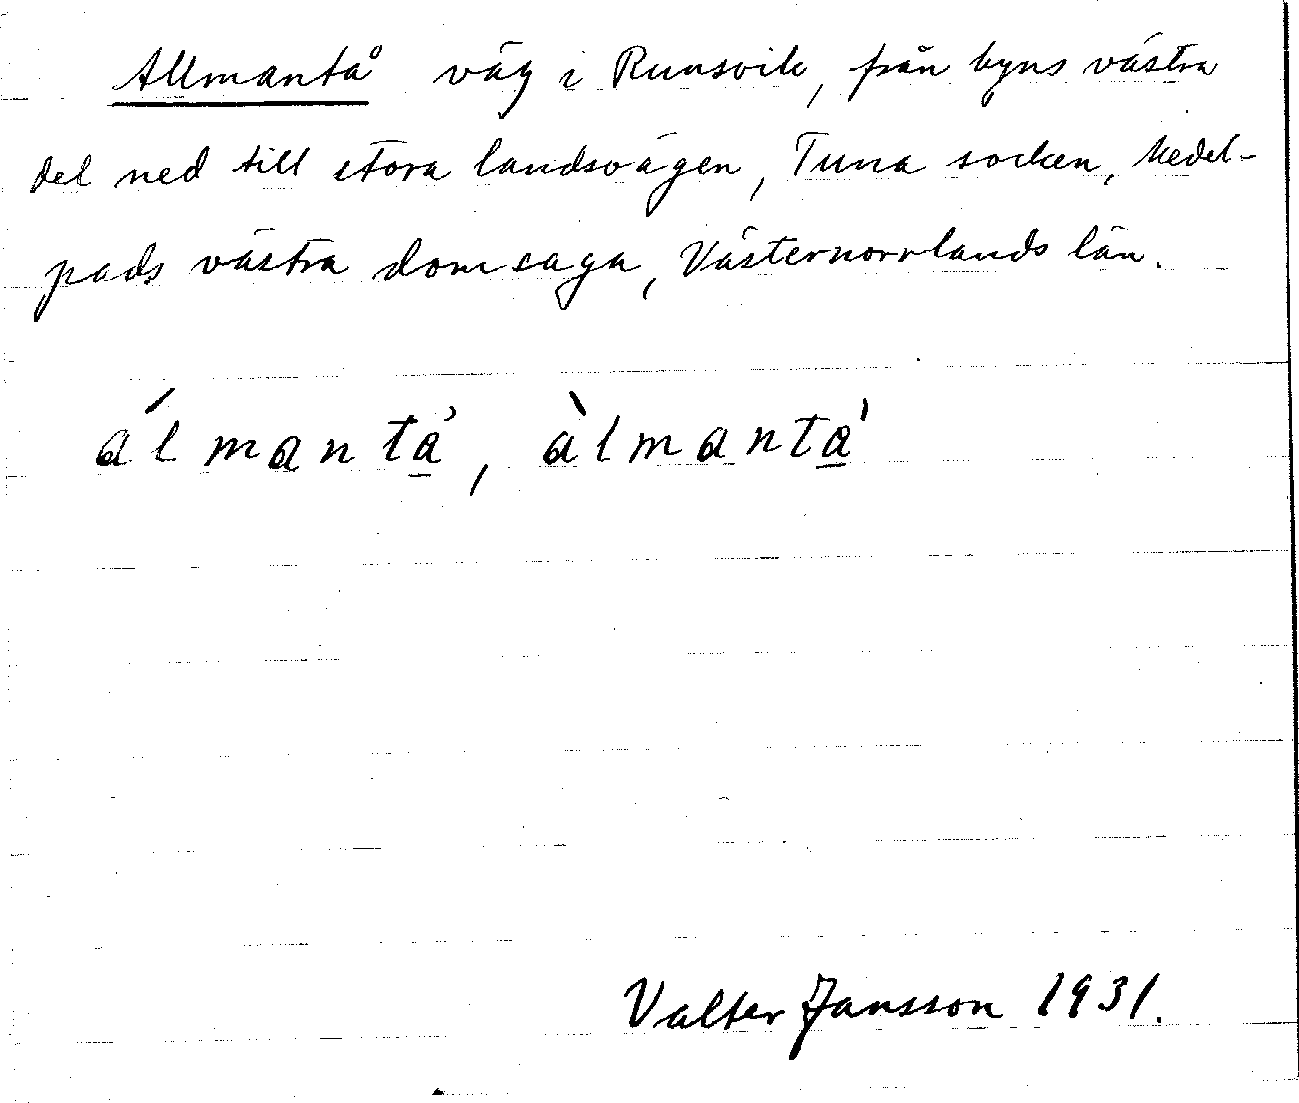 Allmantå väg i Runsvik, från byns västra
del ned till stora landsvägen, Tuna socken, Medel-
pads västra domsaga, Västernorrlands län.
álmantả̲, àlmantá̲
Valter Jansson 1931.